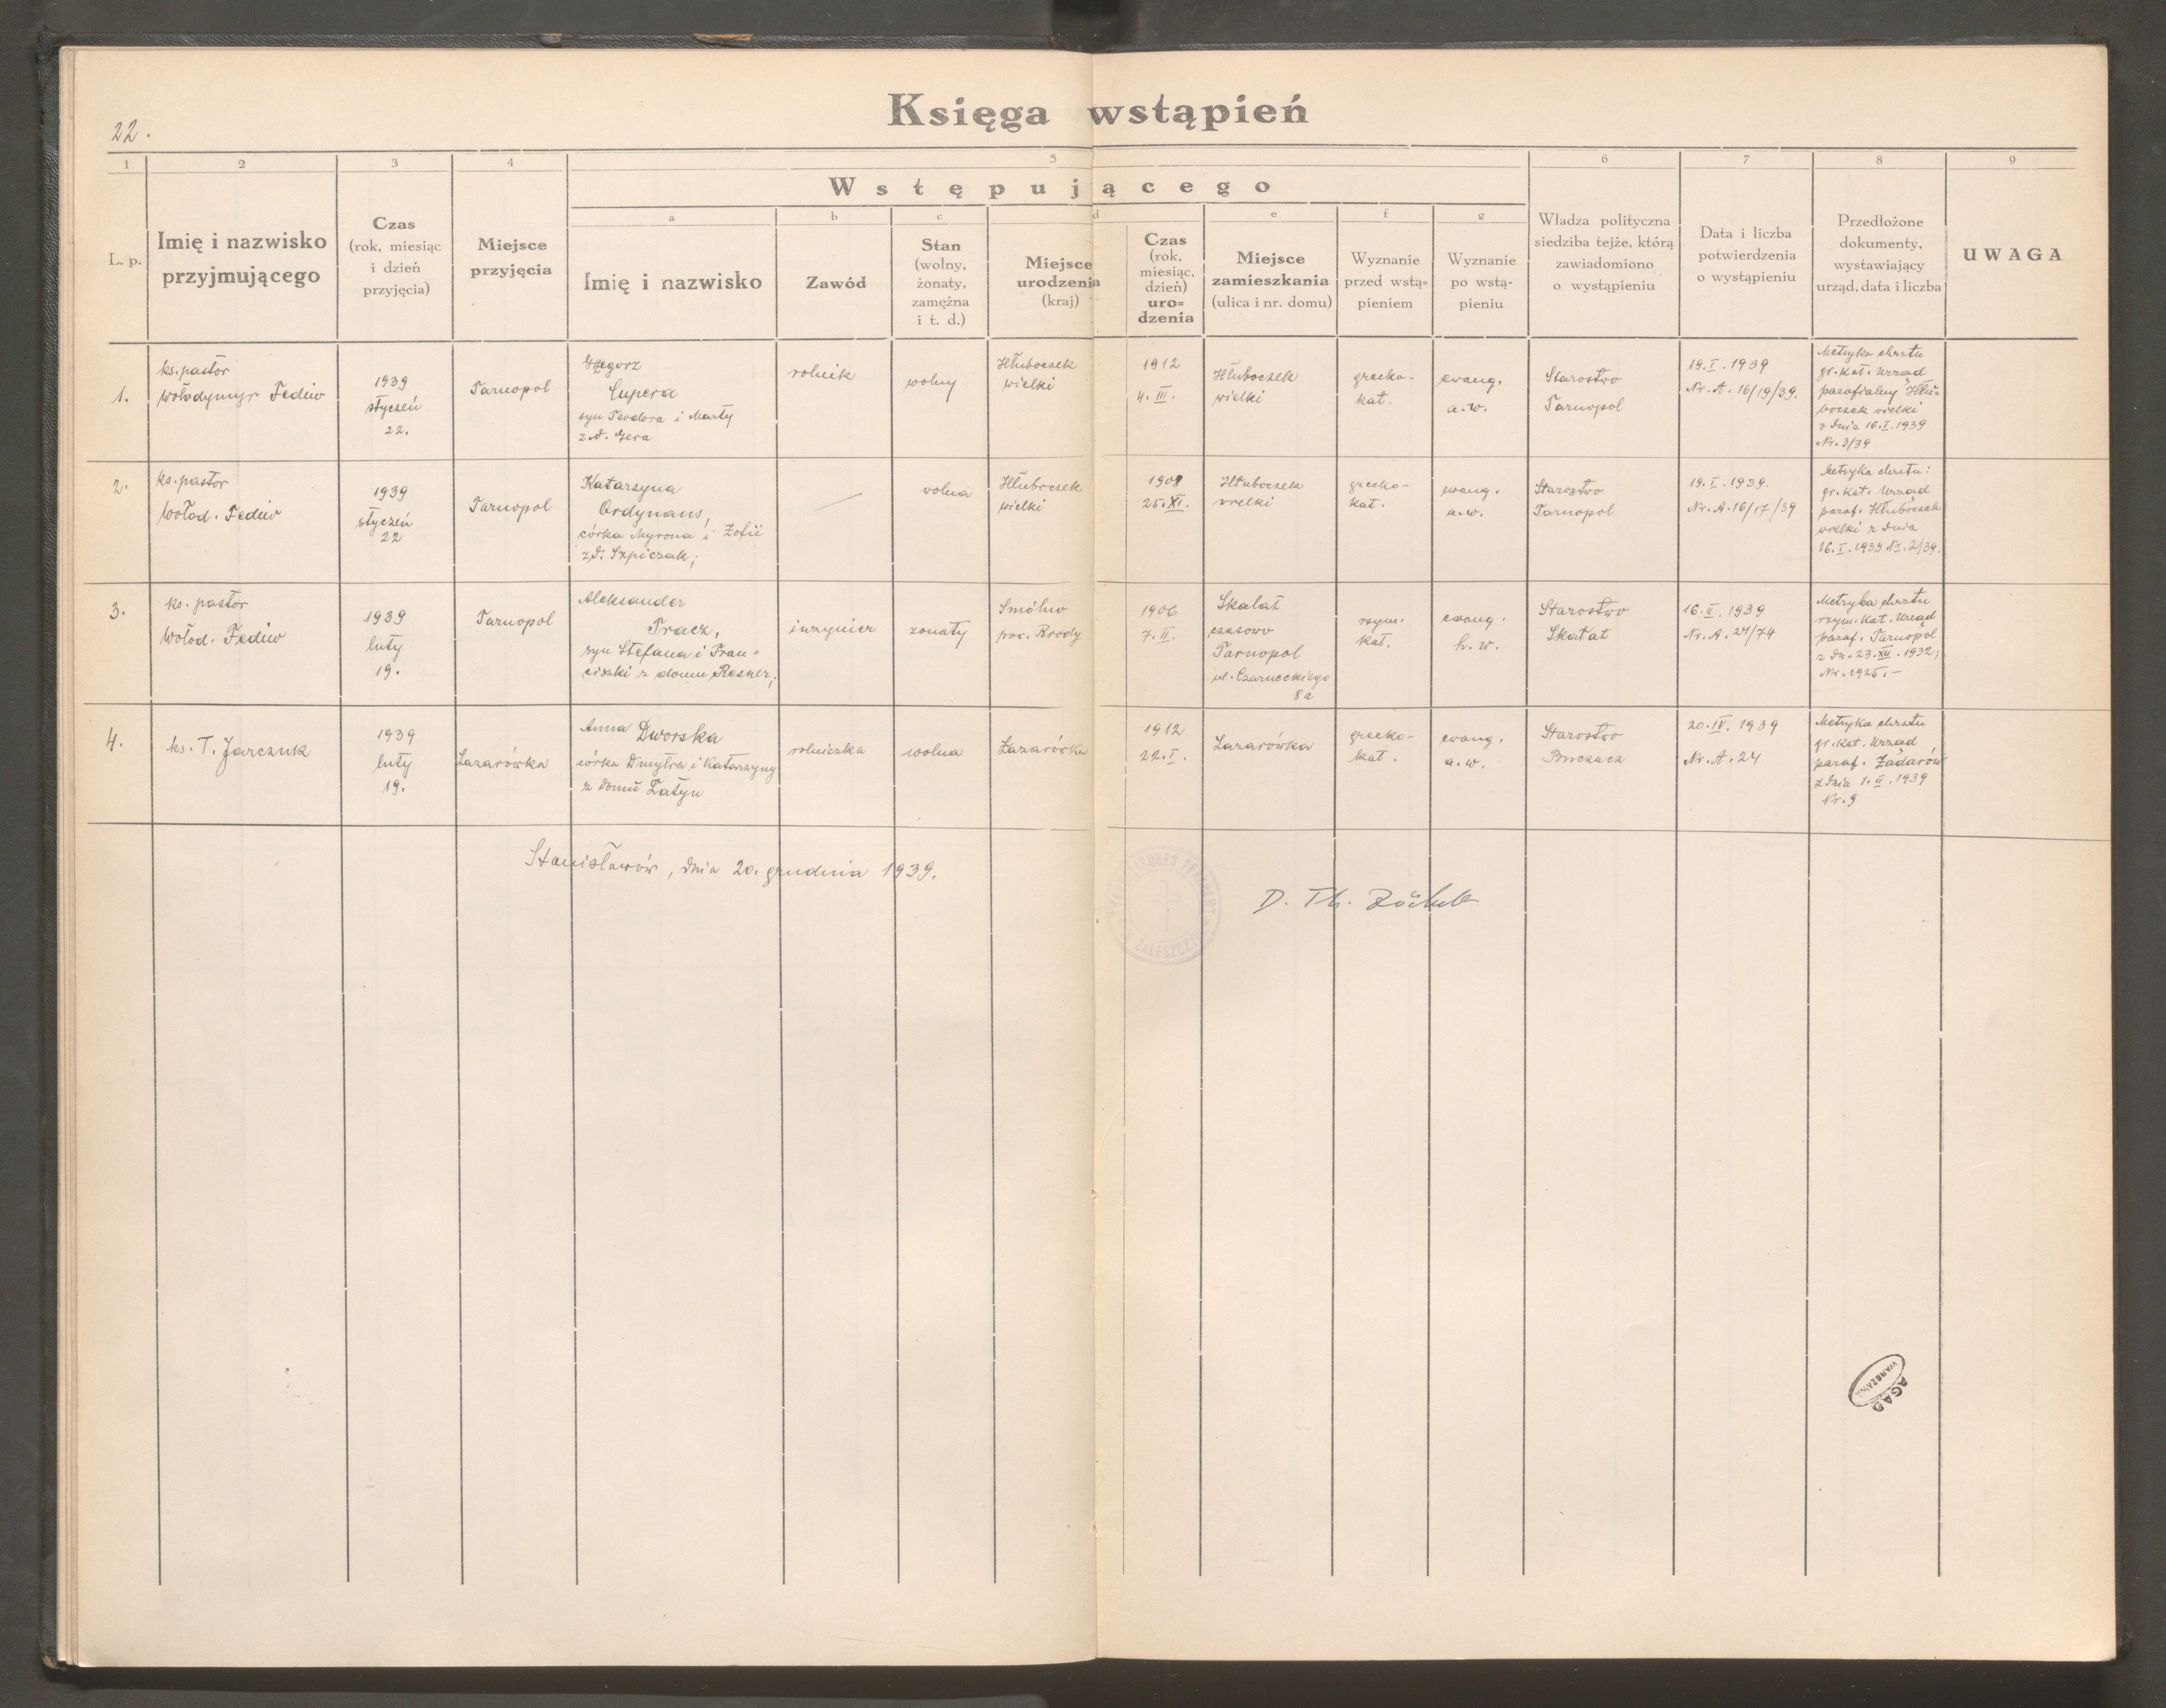 Księga wstąpień
22.
1 2 3 4 5 6 7 8 9
Wstępującego
a b c d e f g
L. p.
Imię i nazwisko
przyjmującego
Czas
(rok, miesiąc
i dzień
przyjęcia)
Miejsce
przyjęcia
Imię i nazwisko
Zawód
Stan
(wolny,
żonaty,
zamężna
i t. d.)
Miejsce
urodzenia
(kraj)
Czas
(rok,
miesiąc,
dzień)
uro=
dzenia
Miejsce
zamieszkania
(ulica i nr. domu)
Wyznanie
przed wstą=
pieniem
Wyznanie
po wstą-
pieniu
Władza polityczna
siedziba tejże, którą
zawiadomiono
o wystąpieniu
Data i liczba
potwierdzenia
o wystąpieniu
Przedłożone
dokumenty,
wystawiający
urząd, data i liczba
UWAGA
1.
ks. pastor
Wołodymyr Fediw
1939
styczeń
22.
Tarnopol
Grzegorz
Cupera
syn Teodora i Marty
z d. Gera
rolnik
wolny
Hłuboczek
wielki
1912
4. III.
Hłuboczek
wielki
grecko-
kat.
ewang.
a.w.
Starostwo
Tarnopol
19. I. 1939
Nr. A. 16/19/39.
Metryka chrztu
gr. kat. Urząd
parafialny Hłu=
boczek wielki
z dnia 16. I. 1939
Nr. 3/39
2.
ks. pastor
Wołod. Fediw
1939
styczeń
22
Tarnopol
Katarzyna
Ordynans,
córka Myrona i Zofii
z d. Szpiczak;
wolna
Hłuboczek
wielki
1908
25. XI.
Hłuboczek
wielki
grecko-
kat.
ewang.
a.w.
Starostwo
Tarnopol
19. I. 1939.
Nr. A. 16/17/39
Metryka chrztu:
gr. kat. Urząd
paraf. Hłuboczek
wielki z dnia
16. I. 1939 Nr. 2/39.
3.
ks. pastor
Wołod. Fediw
1939
luty
19.
Tarnopol
Aleksander
Tracz,
syn Stefana i Fran=
ciszki z domu Rosner;
inżynier
żonaty
Smólno
pow. Brody
1906
7. II.
Skałat
czasowo
Tarnopol
ul. Czarneckiego
8a
rzym.
kat.
ewang.
h. w.
Starostwo
Skałat
16. II. 1939
Nr. A. 21/74
Metryka chrztu
rzym. kat. Urząd
paraf. Tarnopol
z dn. 23. XII. 1932;
Nr. 1925.-
4.
ks. T. Jarczuk
1939
luty
19.
Łazarówka
Anna Dworska
córka Dmytra i Katarzyny
z domu Łatyn
rolniczka
wolna
Łazarówka
1912
22. I.
Łazarówka
grecko-
kat.
ewang.
a.w.
Starostwo
Buczacz
20. IV. 1939
Nr. A. 24
Metryka chrztu
gr. kat. Urząd
paraf. Zadarów
z dnia 1. II. 1939
Nr. 9
Stanisławów, dnia 20. grudnia 1939.
D. Th. Zöckler
AGAD
WARSZAWA